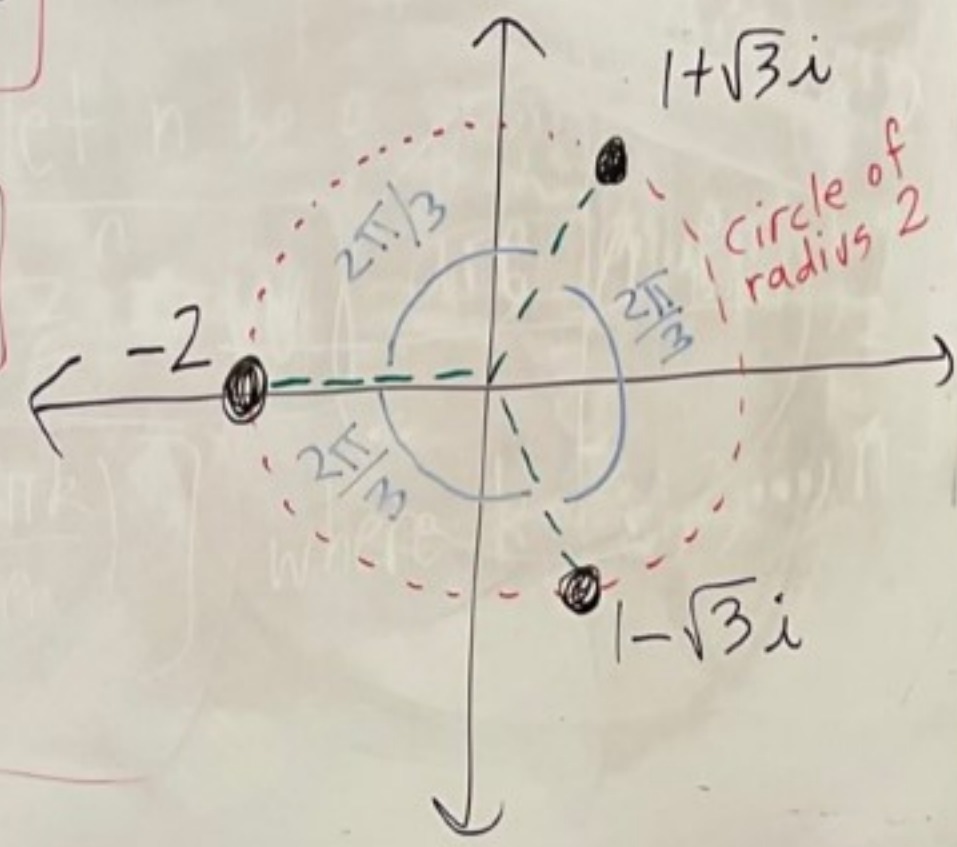 1+√3i
circle of
radius 2
2π/3
2π/3
-2
2π/3
1-√3i